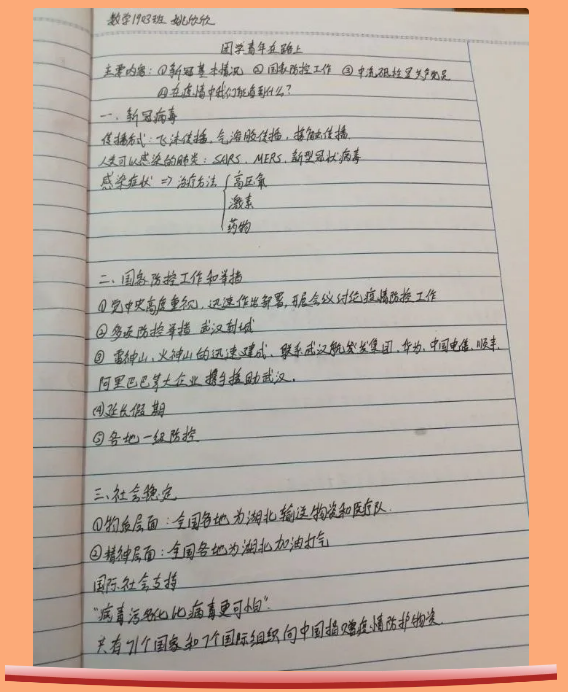 数学1903班 姚欣欣
国学青年在路上
主要内容：①新冠基本情况 ②国家防控工作 ③中流砥柱显
④在疫情中我们能看到什么？
一、新冠病毒
传播方式：飞沫传播、气溶胶传播，接触传播.
人类可以感染的肺炎：SARS、MERS、新型冠状病毒
感染症状 => 治疗方法 { 高压氧
激素
药物
二、国家防控工作和举措
①党中央高度重视，迅速作出部署，开启会议讨论疫情防控工作
②多项防控举措 武汉封城
③ 雷神山、火神山的迅速建成，联系武汉 集团、华为、中国电信、顺丰、
阿里巴巴等大企业 携手援助武汉.
(4)延长假期
⑤各地一级防控
三、社会稳定
①物质层面：全国各地为湖北输送物资和医疗队.
②精神层面：全国各地为湖北加油打气
国际社会支持
"病毒污名化比病毒更可怕":
共有71个国家和7个国际组织向中国捐赠疫情防护物资.